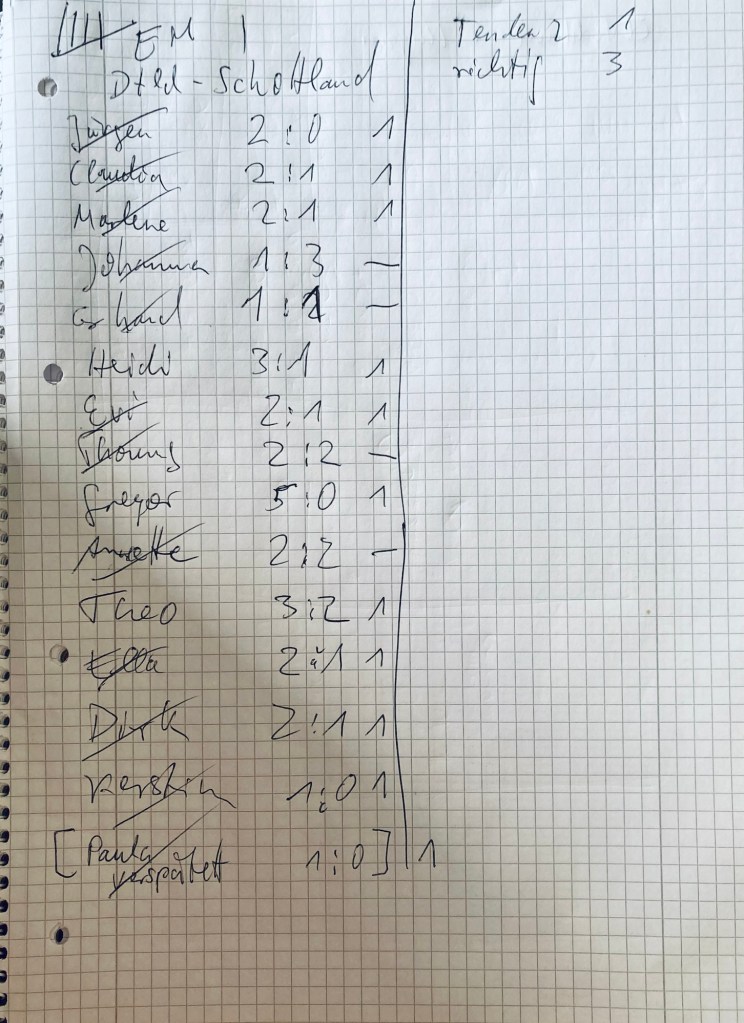 EM
Tendenz 1
richtig 3
Dtld - Schottland
Jürgen 2:0 1
Claudia 2:1 1
Marlene 2:1 1
Johanna 1:3 —
Gerhard 1:1 —
Heidi 3:1 1
Evi 2:1 1
Thomas 2:2 —
Gregor 5:0 1
Annette 2:2 —
Theo 3:2 1
Ella 2:1 1
Dirk 2:1 1
Kerstin 1:0 1
[Paula 1:0] 1
verspätet